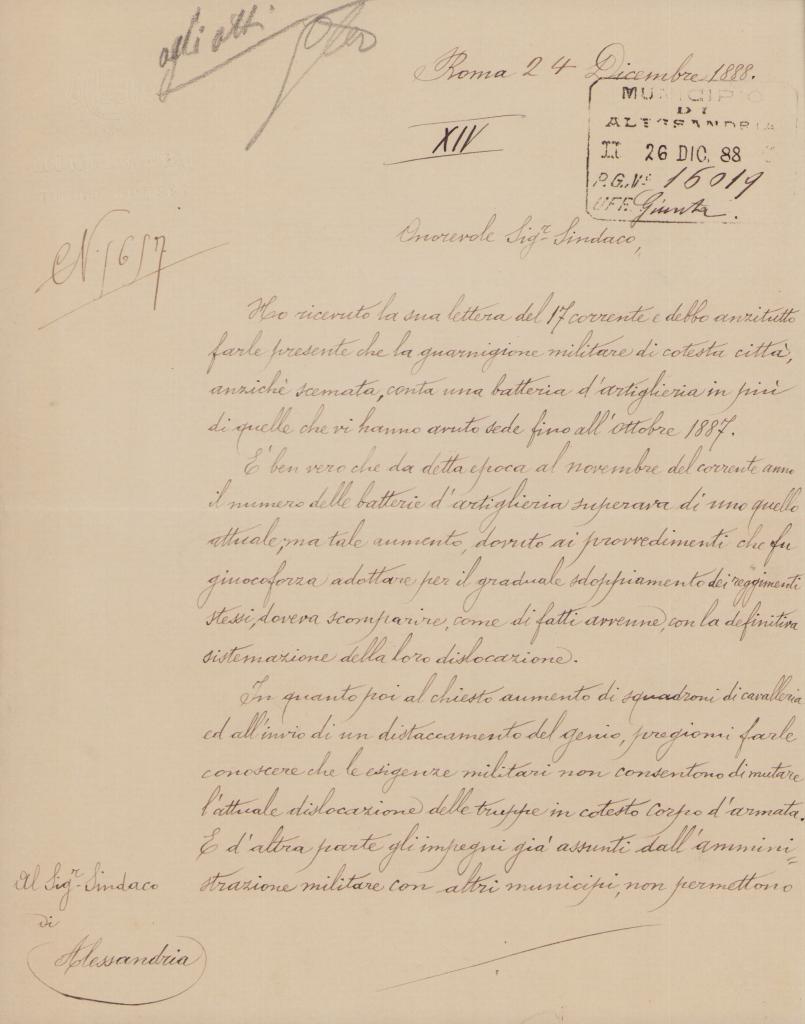 agli atti
Roma 24 Dicembre 1888.
MUNICIPIO
DI
ALESSANDRIA
II 26 DIC. 88
P.G. Nº 16019
UFF. Giunta.
XIV
Onorevole Sigr. Sindaco,
N. 1617
Ho ricevuto la sua lettera del 17 corrente e debbo anzitutto
farle presente che la guarnigione militare di cotesta città,
anzichè scemata, conta una batteria d'artiglieria in più
di quelle che vi hanno avuto sede fino all'ottobre 1887.
E' ben vero che da detta epoca al novembre del corrente anno
il numero delle batterie d'artiglieria superava di uno quello
attuale, ma tale aumento, dovuto ai provvedimenti che fu
giuocoforza adottare per il graduale sdoppiamento dei reggimenti
stessi, doveva scomparire, come di fatti avvenne, con la definitiva
sistemazione della loro dislocazione.
In quanto poi al chiesto aumento di squadroni di cavalleria
ed all'invio di un distaccamento del genio, pregiomi farle
conoscere che le esigenze militari non consentono di mutare
l'attuale dislocazione delle truppe in cotesto corpo d'armata.
E d'altra parte gli impegni già assunti dall'ammini=
strazione militare con altri municipi, non permettono
Al Sigr. Sindaco
di
Alessandria